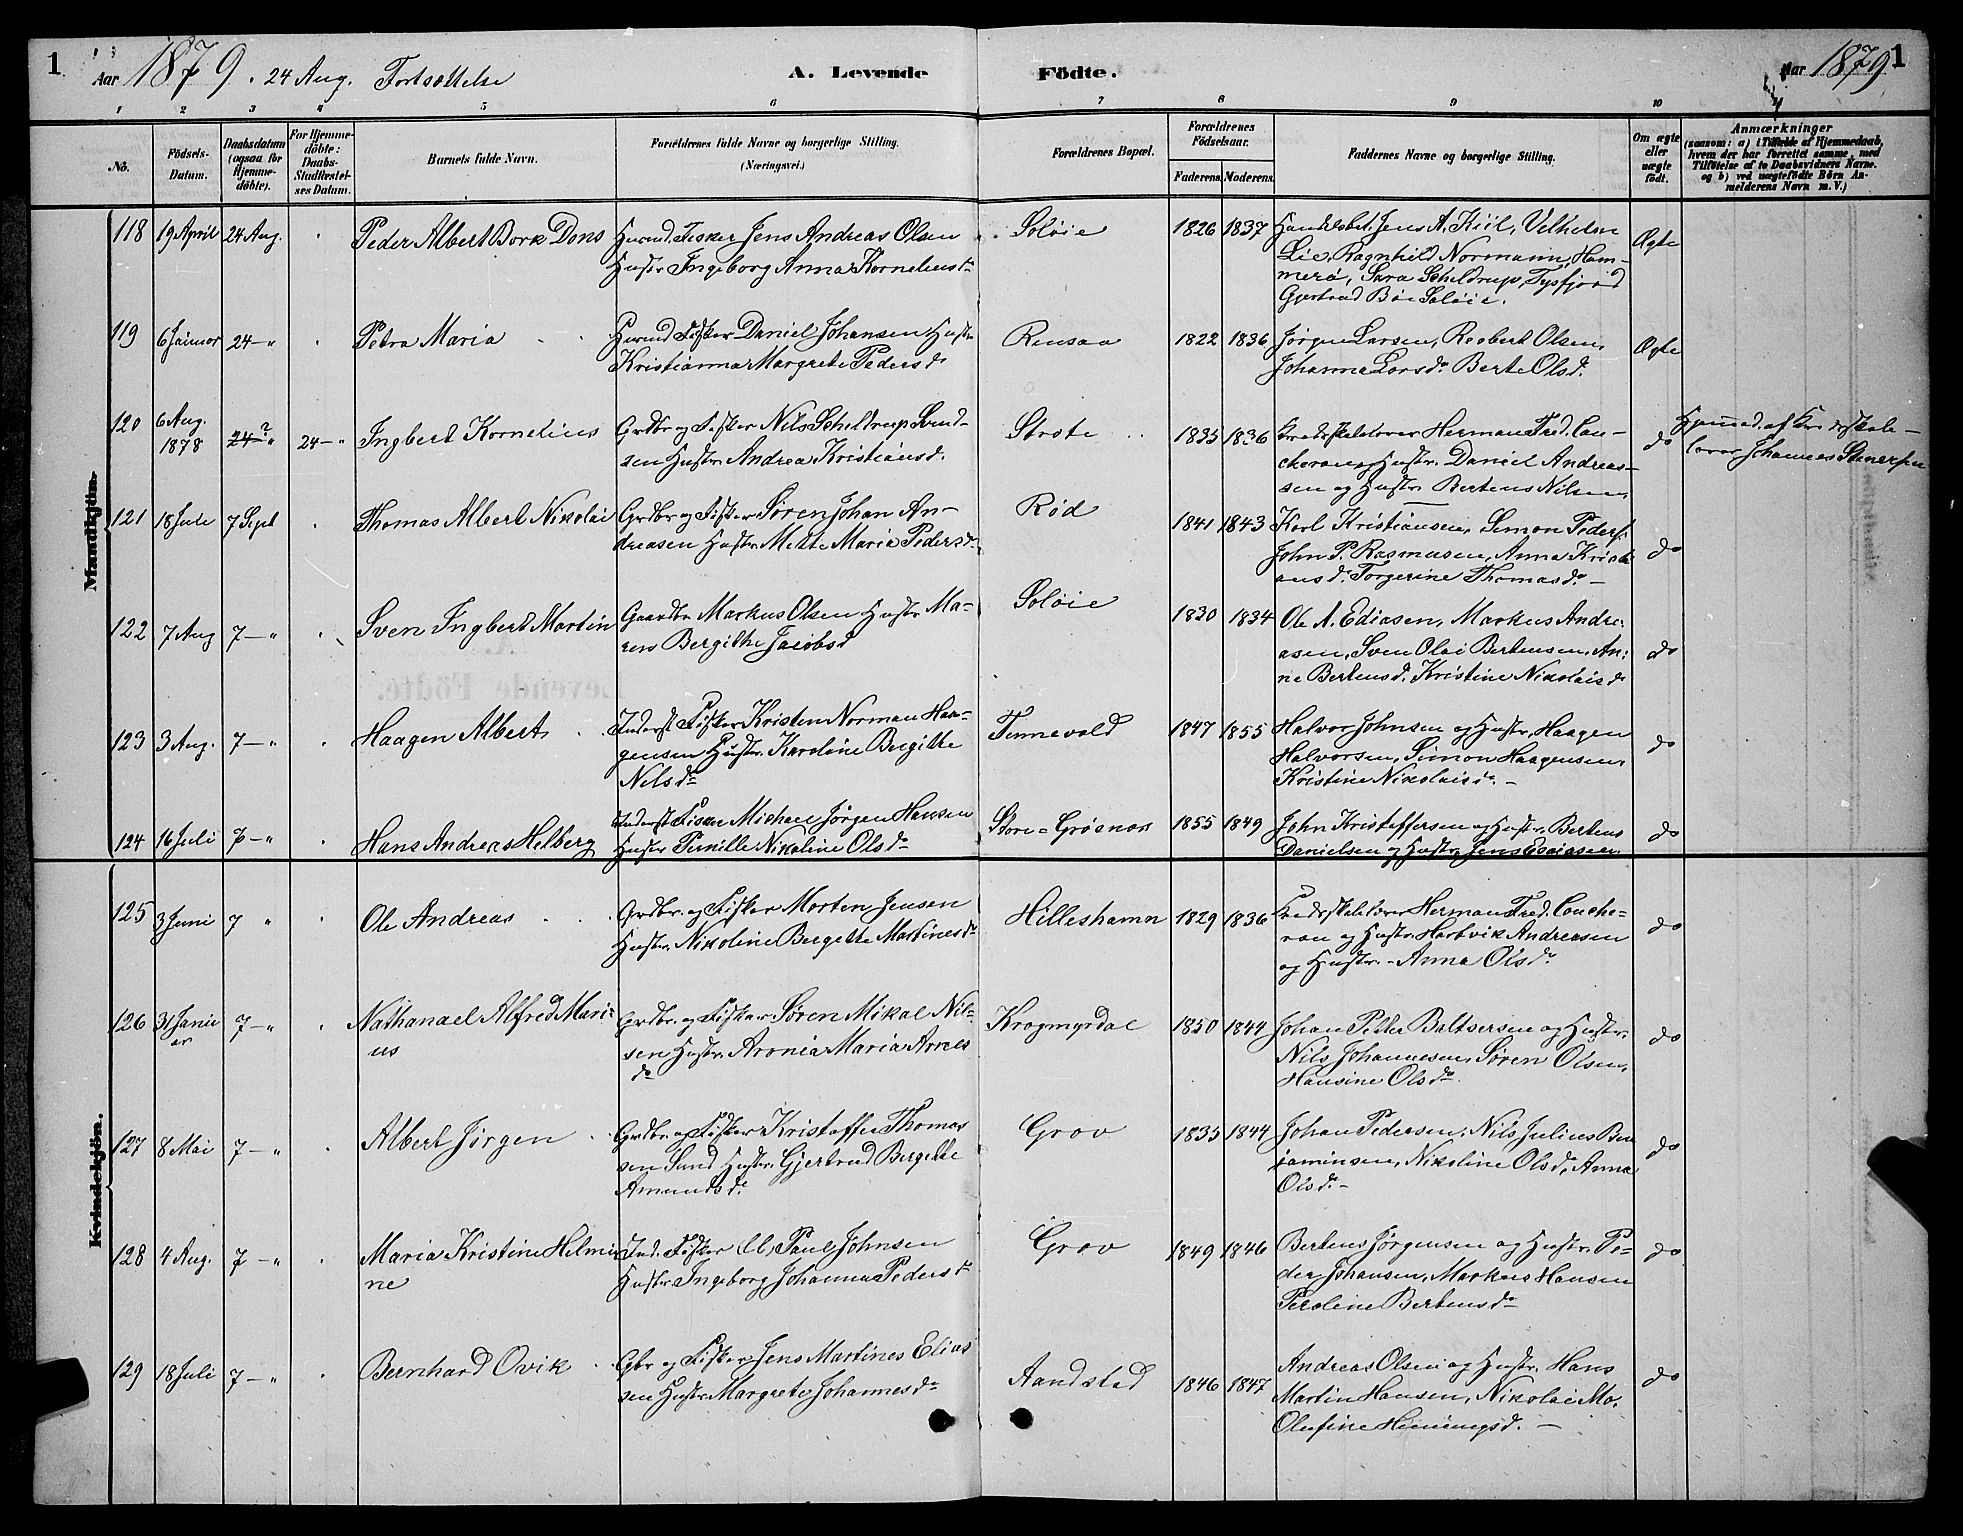 1
Aar 1879. 24 Aug. Fortsættelse
A. Levende Födte.
Aar 1879
1
1 2 3 4 5 6 7 8 9 10
No.
Födsels-Datum.
Daabsdatum (ogsaa for Hjemmedöbte).
For Hjemmedöbte: Daabs-Stadfæstelses Datum.
Barnets fulde Navn.
Forældrenes fulde Navne og borgerlige Stilling. (Næringsvei.)
Forældrenes Bopæl.
Forældrenes Födselsaar.
Faderens. Moderens.
Faddernes Navne og borgerlige Stilling.
Om ægte eller uægte födt.
Anmærkninger
(saasom: a) i Tilfælde af Hjemmedaab, hvem der har forrettet samme, med Tilföielse af to Daabsvidners Navne. og b) ved uægtefödte Börn Anmelderens Navn m. V.)
Mandkjön.
118 19 April 24 Aug. Peder Albert Bork Dons
Fisker Jens Andreas Olsen
Hustr. Ingeborg Anna Korneliusd.
Soløie 1826 1837
Jens A. Kiil, Vilhelm
Lie, Ragnhild Normann, Ham-
merø, Sara Scheldrup, Tysfjord
Gjertrud Böe Soløie.
Ægte
119 6 Januar 24 — " Petra Maria
Fisker Daniel Johansen Hustr.
Kristianna Margrete Pedersd.
Rensaa 1822 1836
Jørgen Larsen, Reebert Olsen,
Johanna Larsd. Berte Olsd.
Ægte
120 6 Aug. 1878 24 — " 24 — " Ingbert Kornelius
Grdbr og Fisker Nils Scheldrup Svend-
sen Hustr. Andrea Kristiansd.
Strøte 1835 1836
Herman Fred. Cou-
cheron og Hustr. Daniel Andreas-
sen og Hustr. Bertens Nilsen.
do
Hjemmed. af
lærer Johannes Stenersen
121 18 Juli 7 Sept Thomas Albert Nikolai
Grdbr og Fisker Søren Johan An-
dreasen Hustr. Mette Maria Pedersd.
Rød 1841 1843
Karl Kristiansen, Simon Peders.
John P. Rasmusen, Anna Kristi
ansd. Torgerine Thomasd. —
do
122 7 Aug 7 — " Sven Ingbert Martin
Gaardbr Markus Olsen Hustr Ma-
ren Bergithe Jacobsd
Soløie 1830 1834
Ole A. Ediasen, Markus Andre-
asen, Sven Olai Bertensen, An-
ne Bertensd. Kristine Nikolaisd.
do
123 3 Aug. 7 — " Haagen Albert
Inderst Fisker Kristen Norman Haa-
gensen Hustr. Karoline Bergitte
Nilsd.
Tennevold 1847 1855
Halvor Johnsen og Hustr. Haagen
Halvorsen, Simon Haagensen,
Kristine Nikolaisd. —
do
124 16 Juli 7 — " Hans Andreas Helberg
Inderst Fisker Michael Jørgen Hansen
Hustr Pernille Nikoline Olsd.
Store-Grøsnæs 1855 1849
John Kristoffersen og Hustr. Bertens
Danielsen og Hustr. Jens Esaiasen
do
Kvindekjön.
125 3 Juni 7 " Ole Andreas
Grdbr. og Fisker Morten Jensen
Hustr. Nikoline Bergitte Martinesd.
Hilleshamn 1829 1836
Herman Fred. Couche-
ron og Hustr. Hartvik Andreasen
og Hustr. - Anna Olsd.
do
126 31 Januar 7 — " Nathanael Alfred Mari-
us
Grdbr. og Fisker Søren Mikal Nil-
sen Hustr. Aronia Maria Arnes
d.
Krogmyrdal 1850 1844
Johan Petter Baltsersen og Hustr.
Nils Johannesen, Søren Olsen,
Hansine Olsd.
do
127 8 Mai 7 — " Albert Jørgen
Grdbr. og Fisker Kristoffer Thomas
sen Sund Hustr. Gjertrud Bergitte
Amundsd.
Grov 1835 1844
Johan Pedersen, Nils Julius Ben
jaminsen, Nikoline Olsd, Anna
Olsd. —
do
128 4 Aug. 7 — " Maria Kristine Helmi
ne
Ind. Fisker Ol. Paul Johnsen
Hustr. Ingeborg Johanna Pedersd.
Grov 1849 1846
Bertens Jørgensen og Hustr. Pe-
der Johansen, Markus Hansen
Peroline Bertensd.
do
129 18 Juli 7 — " Bernhard Ovik
Gbr og Fisker Jens Martines Elias
sen Hustr. Margrete Johannesd.
Aandstad 1846 1847
Andreas Olsen og Hustr. Hans
Martin Hansen, Nikolai Mo,
Olufine Henningsd. —
do